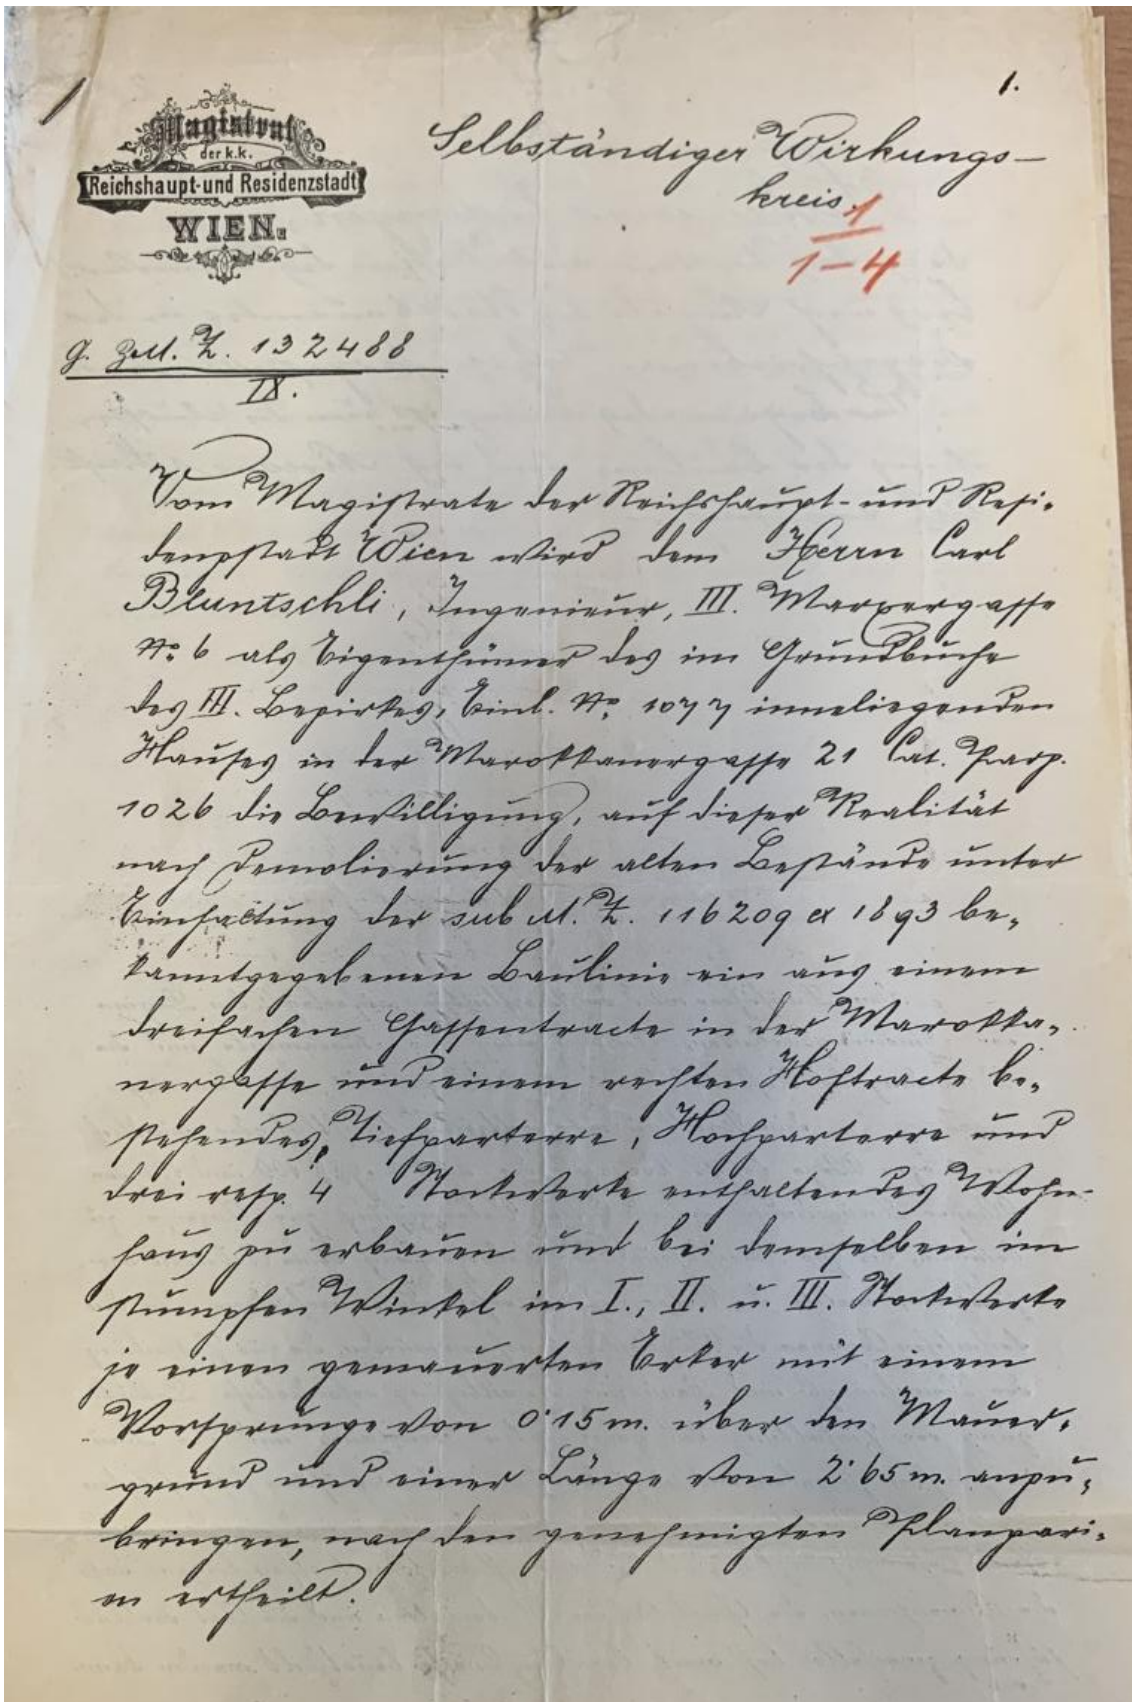 1.
Magistrat
der k.k.
Reichshaupt- und Residenzstadt
WIEN.
Selbständiger Wirkungs-
kreis.
1
1-4
G. Z. 132488
IX.
Vom Magistrate der Reichshaupt- und Resi-
denzstadt Wien wird dem Herrn Carl
Bluntschli, Ingenieur, III. Marxergasse
No 6 als Eigenthümer des im Grundbuche
des III. Bezirkes, Einl. No 1077 inneliegenden
Hauses in der Marokkanergasse 21 Cat. Parz.
1026 die Bewilligung, auf dieser Realität
nach Demolierung der alten Bestände unter
Einhaltung der sub M. Z. 116209 ex 1893 be-
kanntgegebenen Baulinie ein aus einem
dreifachen Gassentracte in der Marokka-
nergasse und einem rechten Hoftracte be-
stehendes, Tiefparterre, Hochparterre und
drei resp. 4 Stockwerke enthaltendes Wohn-
haus zu erbauen und bei demselben im
stumpfen Winkel im I., II. u. III. Stockwerke
je einen gemauerten Erker mit einem
Vorsprunge von 0·15 m. über den Mauer-
grund und einer Länge von 2·65 m. anzu-
bringen, nach den genehmigten Planpari-
en ertheilt.